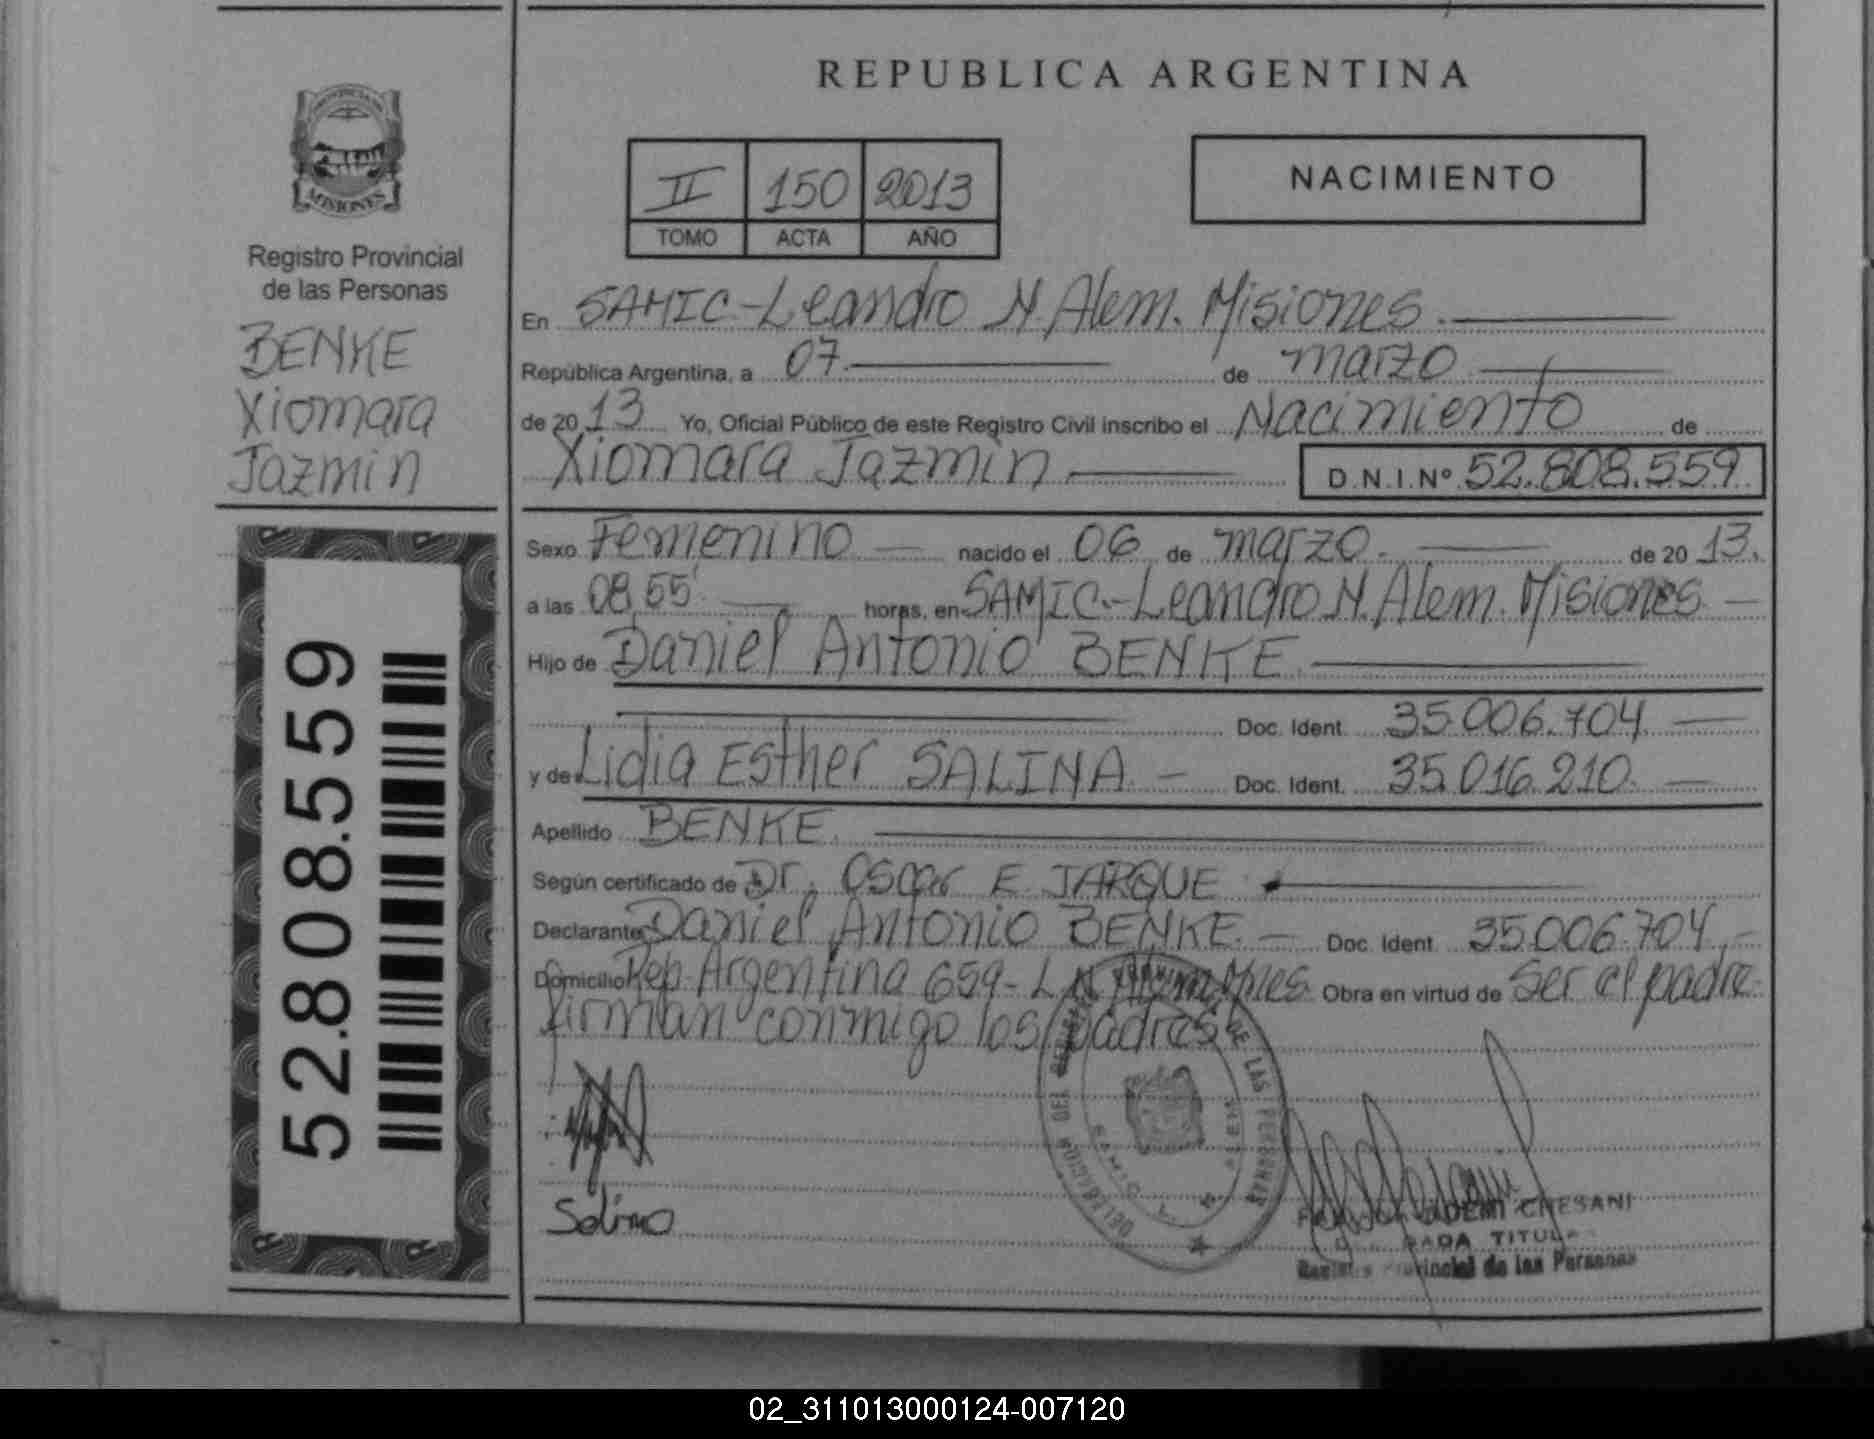 REPUBLICA ARGENTINA
PROVINCIA DE
MISIONES
Registro Provincial
de las Personas
BENKE
Xiomara
Jazmin
52.808.559
II 150 2013
TOMO ACTA AÑO
NACIMIENTO
En SAMIC-Leandro N. Alem. Misiones.
República Argentina, a 07 de marzo
de 2013 Yo, Oficial Público de este Registro Civil inscribo el Nacimiento de
Xiomara Jazmin D.N.I.Nº 52.808.559
Sexo Femenino nacido el 06 de marzo. de 2013.
a las 08,55' horas, en SAMIC.-Leandro N. Alem. Misiones
Hijo de Daniel Antonio BENKE
Doc. Ident. 35.006.704
y de Lidia Esther SALINA. - Doc. Ident. 35.016.210.
Apellido BENKE.
Según certificado de Dr. Oscar E. JARQUE
Declarante Daniel Antonio BENKE. - Doc. Ident. 35.006.704.-
Domicilio Rep. Argentina 659- L.N. Alem Mnes. Obra en virtud de Ser el padre.
firman conmigo los padres
DELEGACION DEL REGISTRO DE LAS PERSONAS
SAMIC
Salina
CHESANI
TITULAR
Registro Provincial de las Personas
02_311013000124-007120